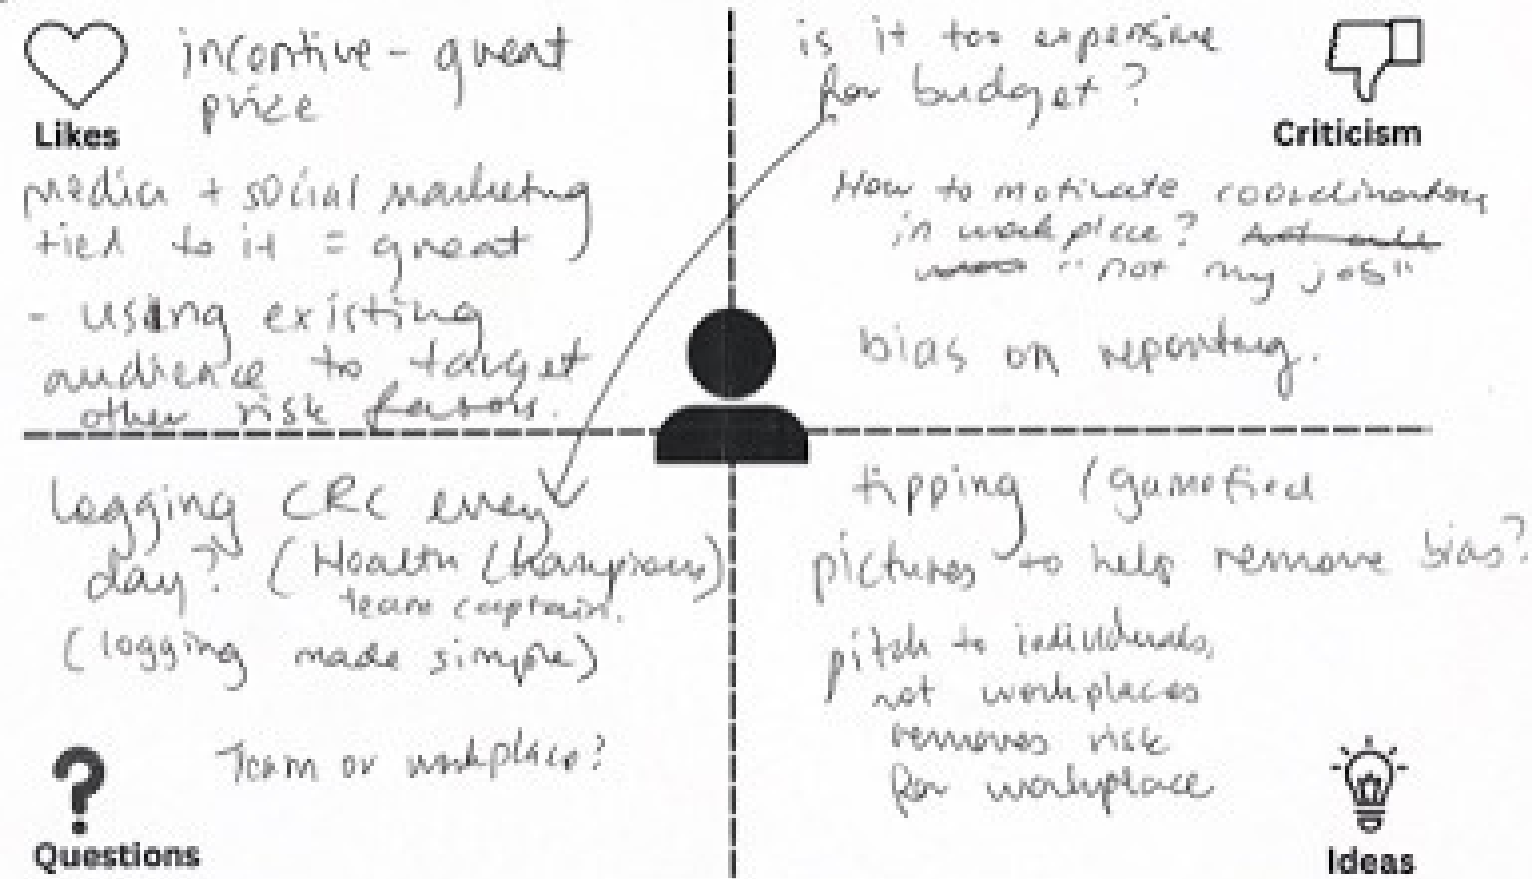 incentive - great
price
Likes
media + social marketing
tied to it = great
- using existing
audience to target
other risk factors.
is it too expensive
for budget?
Criticism
How to motivate coordinators
in workplace?
"not my job"
bias on reporting.
logging CRC every
day? (Health Champions)
team captain.
(logging made simple)
Team or workplace?
Questions
tipping / gamified
pictures to help remove bias?
pitch to individuals,
not workplaces
removes risk
for workplace
Ideas